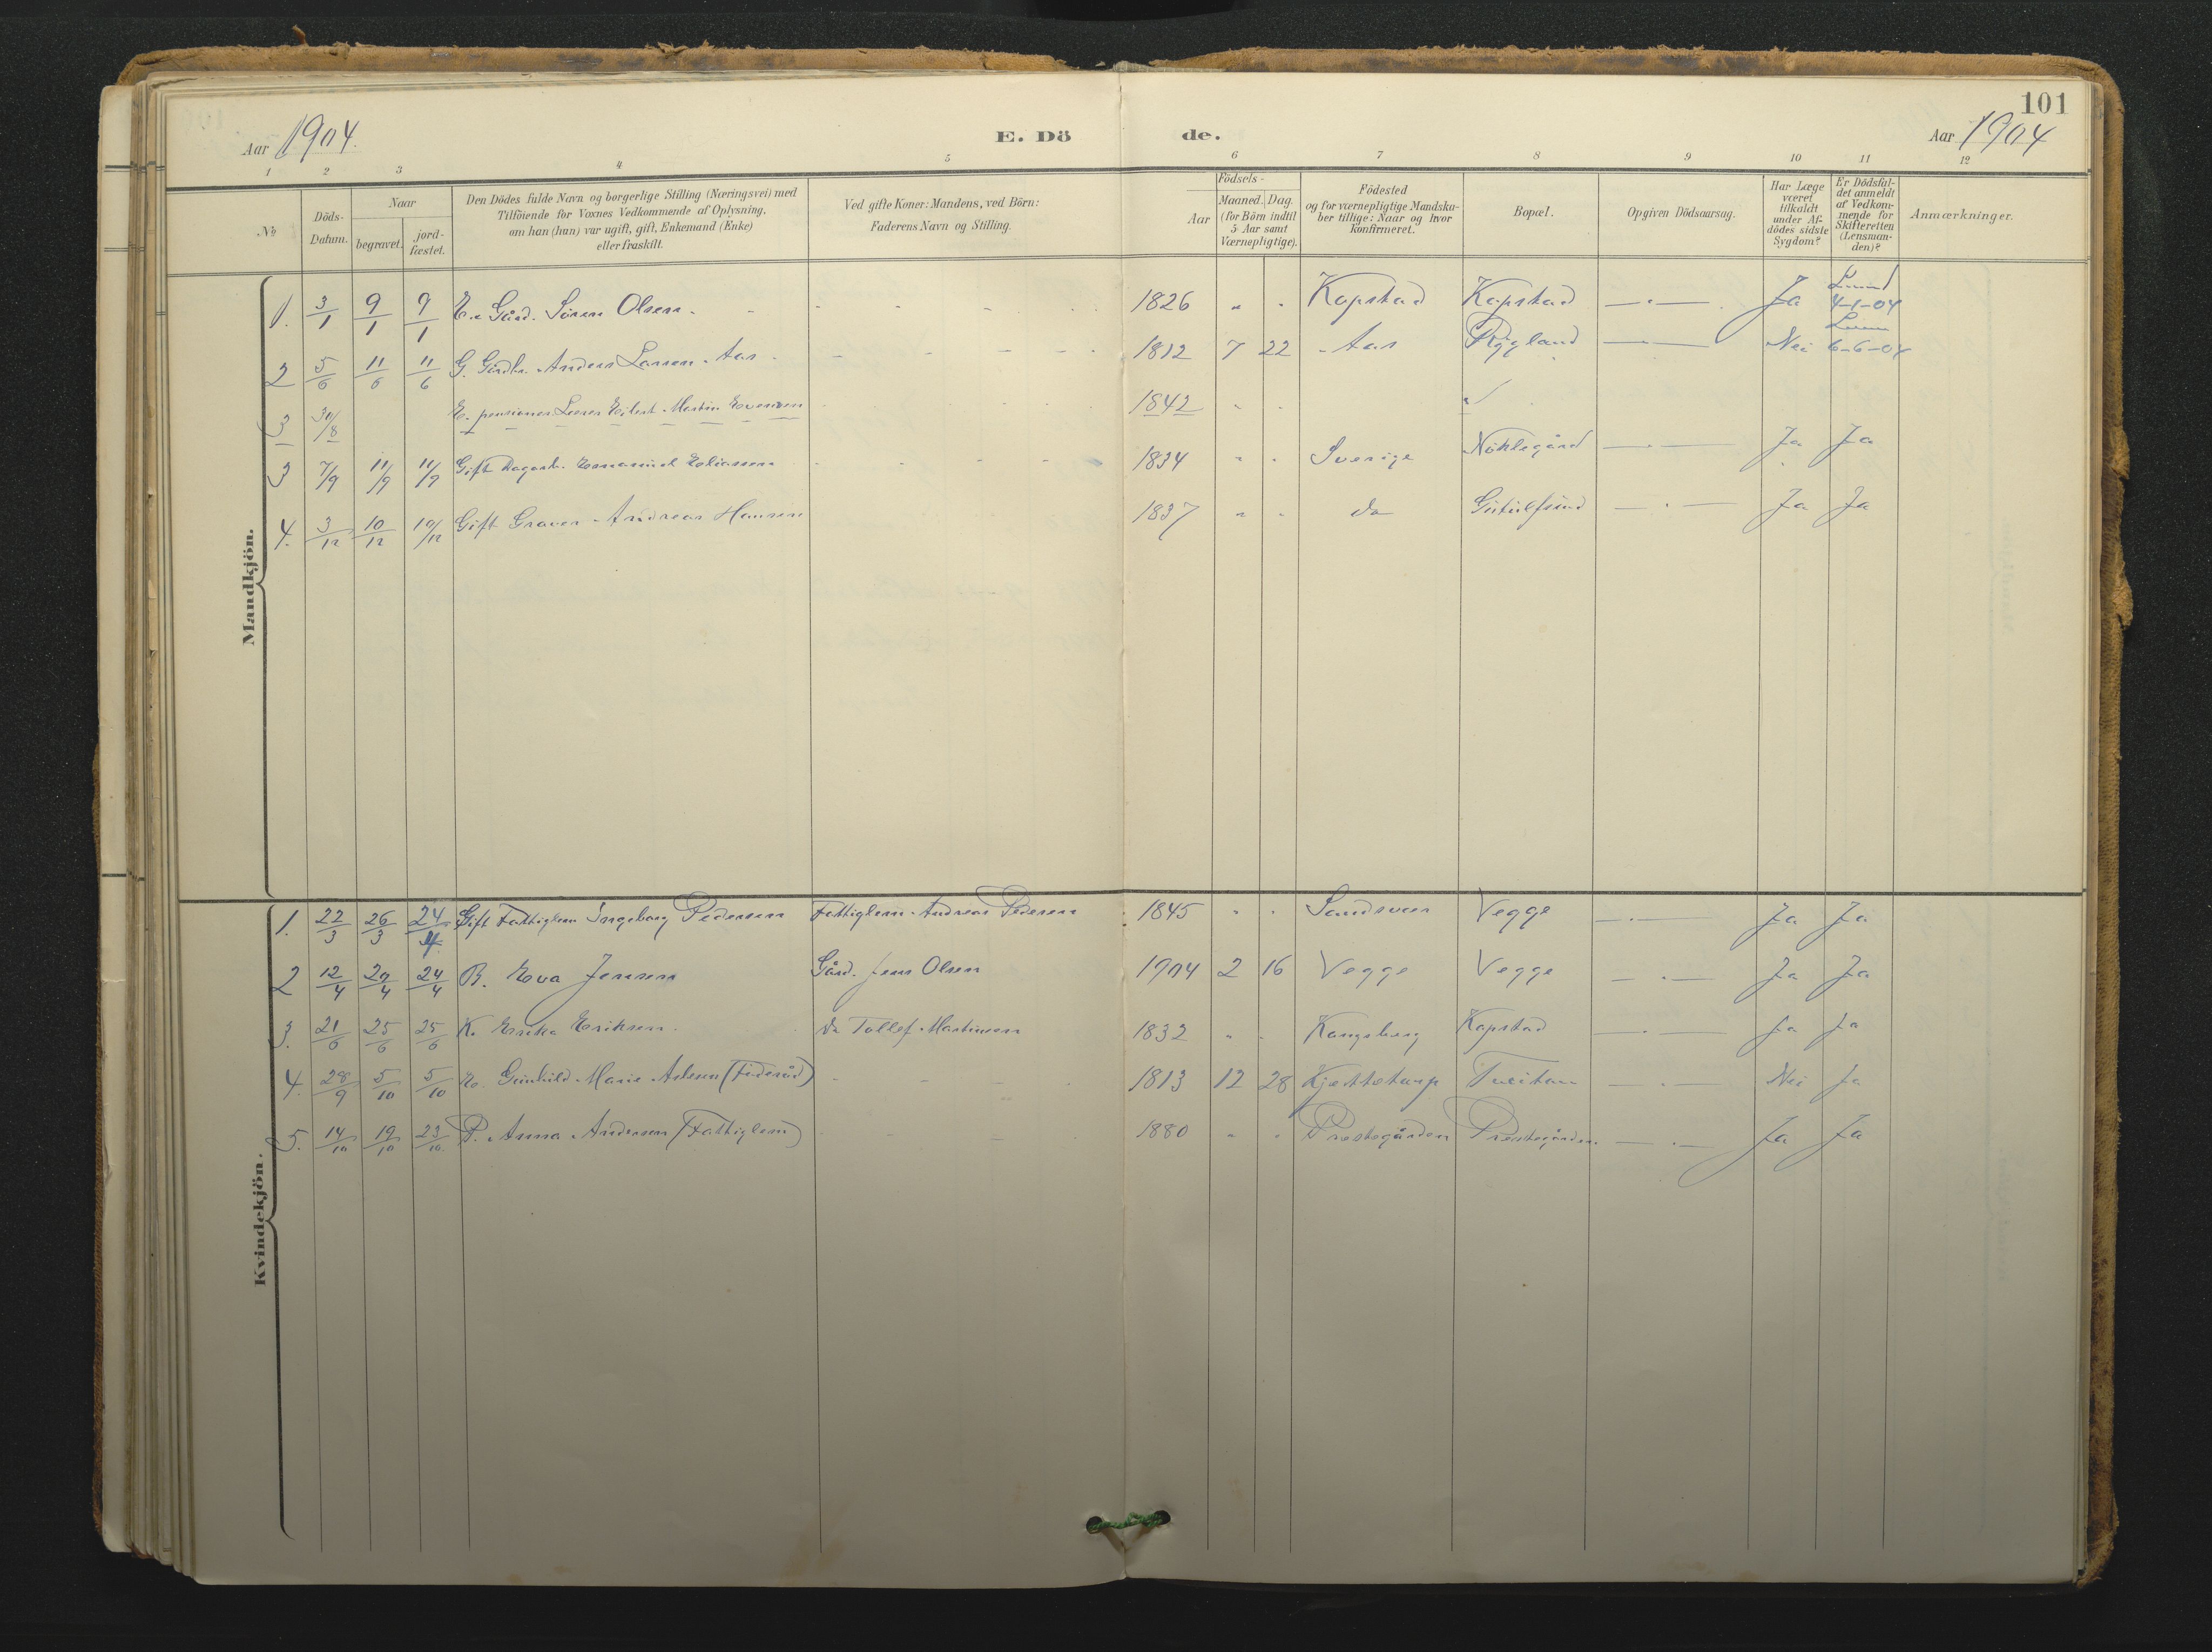 101
Aar 1904.
E. Dö
de.
Aar 1904
1 2 3 4 5 6 7 8 9 10 11 12
No
Döds-Datum.
Naar
begravet.
jord-fæstet.
Den Dödes fulde Navn og borgerlige Stilling (Næringsvei) med
Tilföiende for Voxnes Vedkommende af Oplysning,
om han (hun) var ugift, gift, Enkemand (Enke)
eller fraskilt.
Ved gifte Koner: Mandens, ved Börn:
Faderens Navn og Stilling.
Födsels-
Aar
Maaned. Dag.
(for Börn indtil
5 Aar samt
Værnepligtige).
Födested
og for værnepligtige Mandska-
ber tillige: Naar og hvor
Konfirmeret.
Bopæl.
Opgiven Dödsaarsag.
Har Læge
været
tilkaldt
under Af-
dödes sidste
Sygdom?
Er Dödsfal-
det anmeldt
af Vedkom-
mende for
Skifteretten
(Lensman-
den)?
Anmærkninger.
Mandkjön.
1. 3/1 9/1 9/1 E. Gård. Sören Olsen. - - - - 1826 " " Kopstad Kopstad — " — Ja 4-1-04
2 5/6 11/6 11/6 G. Gårdbr. Anders Larsen Aas - - - - 1812 7 22 Aas Rygland — " — Nei 6-6-04
3 31/8 E. pensioner Lærer Eilert Martin Evensen 1842 " "
3 7/9 11/9 11/9 Gift Dagarb. Emanuel Eliassen 1834 " " Sverige Nöklegård — " — Ja Ja
4. 3/12 10/12 10/12 Gift Graver Andreas Hansen 1837 " " do — " — Ja Ja
Kvindekjön.
1. 22/3 26/3 24/4 Gift Fattiglem Ingeborg Pedersen Fattiglem Andreas Pedersen 1845 " " Sandsvær Vegge — " — Ja Ja
2 12/4 20/4 24/4 B. Eva Jensen Gård. Jens Olsen 1904 2 16 Vegge Vegge — " — Ja Ja
3. 21/6 25/6 25/6 K. Erika Eriksen do Tollef Martinsen 1832 " " Kongsberg Kopstad — " — Ja Ja
4. 28/9 5/10 5/10 E. Gunhild Marie Aslesen (Föderåd) 1813 12 28 — " — Nei Ja
5. 14/10 19/10 23/10 P. Anna Andersen (Fattiglem) 1880 " " Prestegården Prestegården — " — Ja Ja